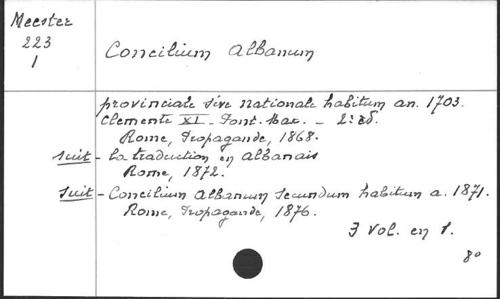 Meester
223
1
Concilium Albanum
provinciale sive nationale habitum an. 1703.
Clemente XI. Pont. Max. - 2: ed.
Rome, Propagande, 1868.
suit - la traduction en albanais
Rome, 1872.
suit - Concilium Albanum secundum habitum a. 1871.
Rome, Propagande, 1876.
3 vol. en 1.
8°